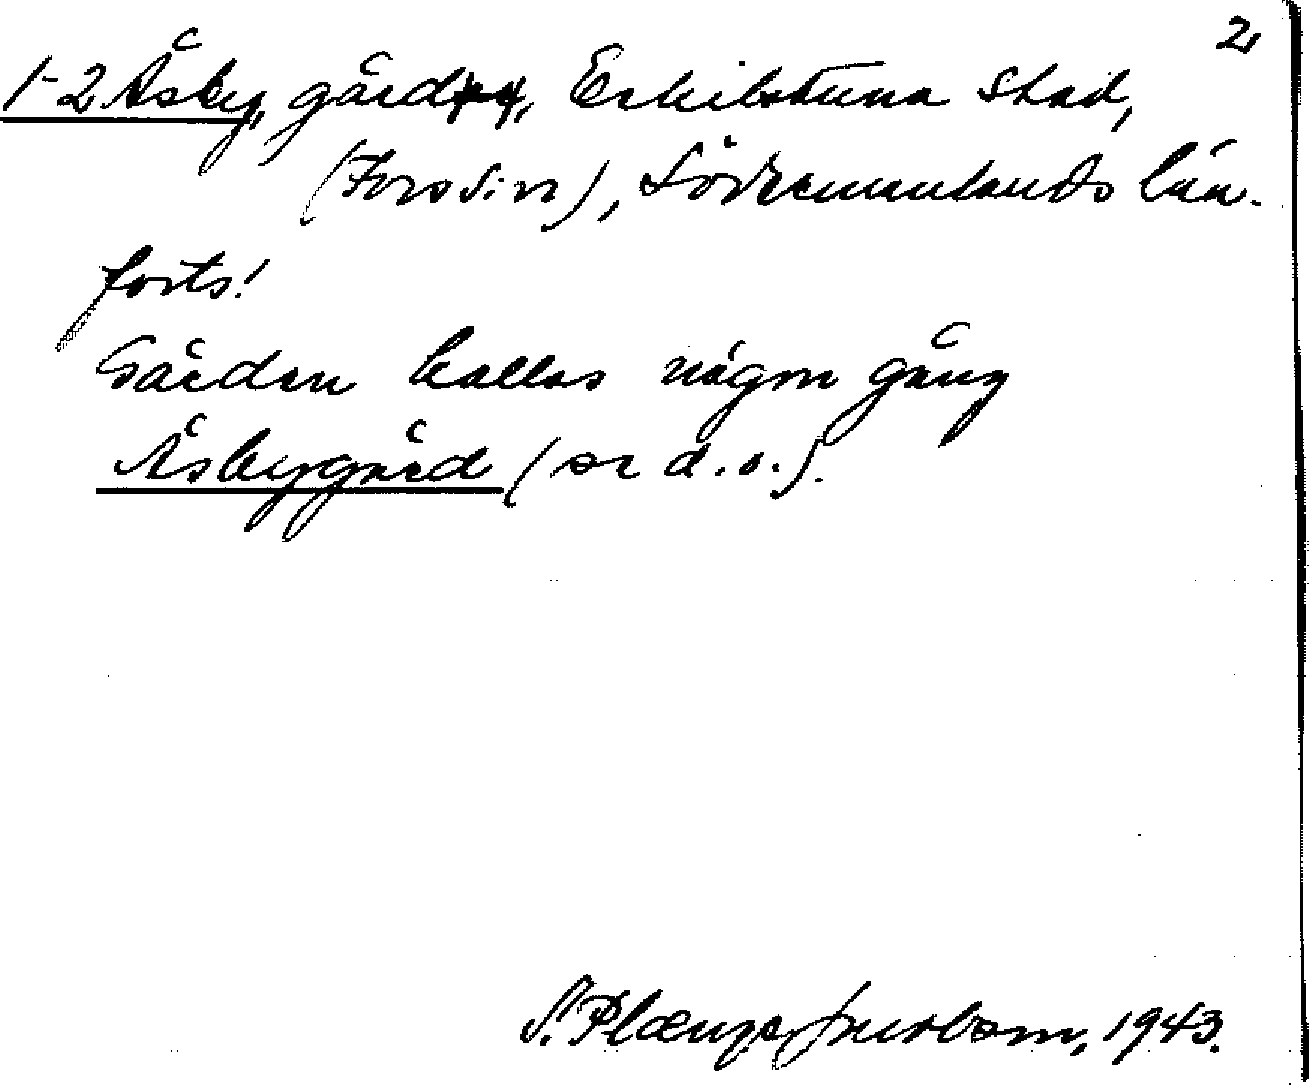 2,
1-2 Åsby, gård, Eskilstuna stad,
(Fors s:n), Södermanlands län.
forts!
Gården kallas någon gång
Åsbygård (se d.o.).
S. Plænge Jacobson, 1943.